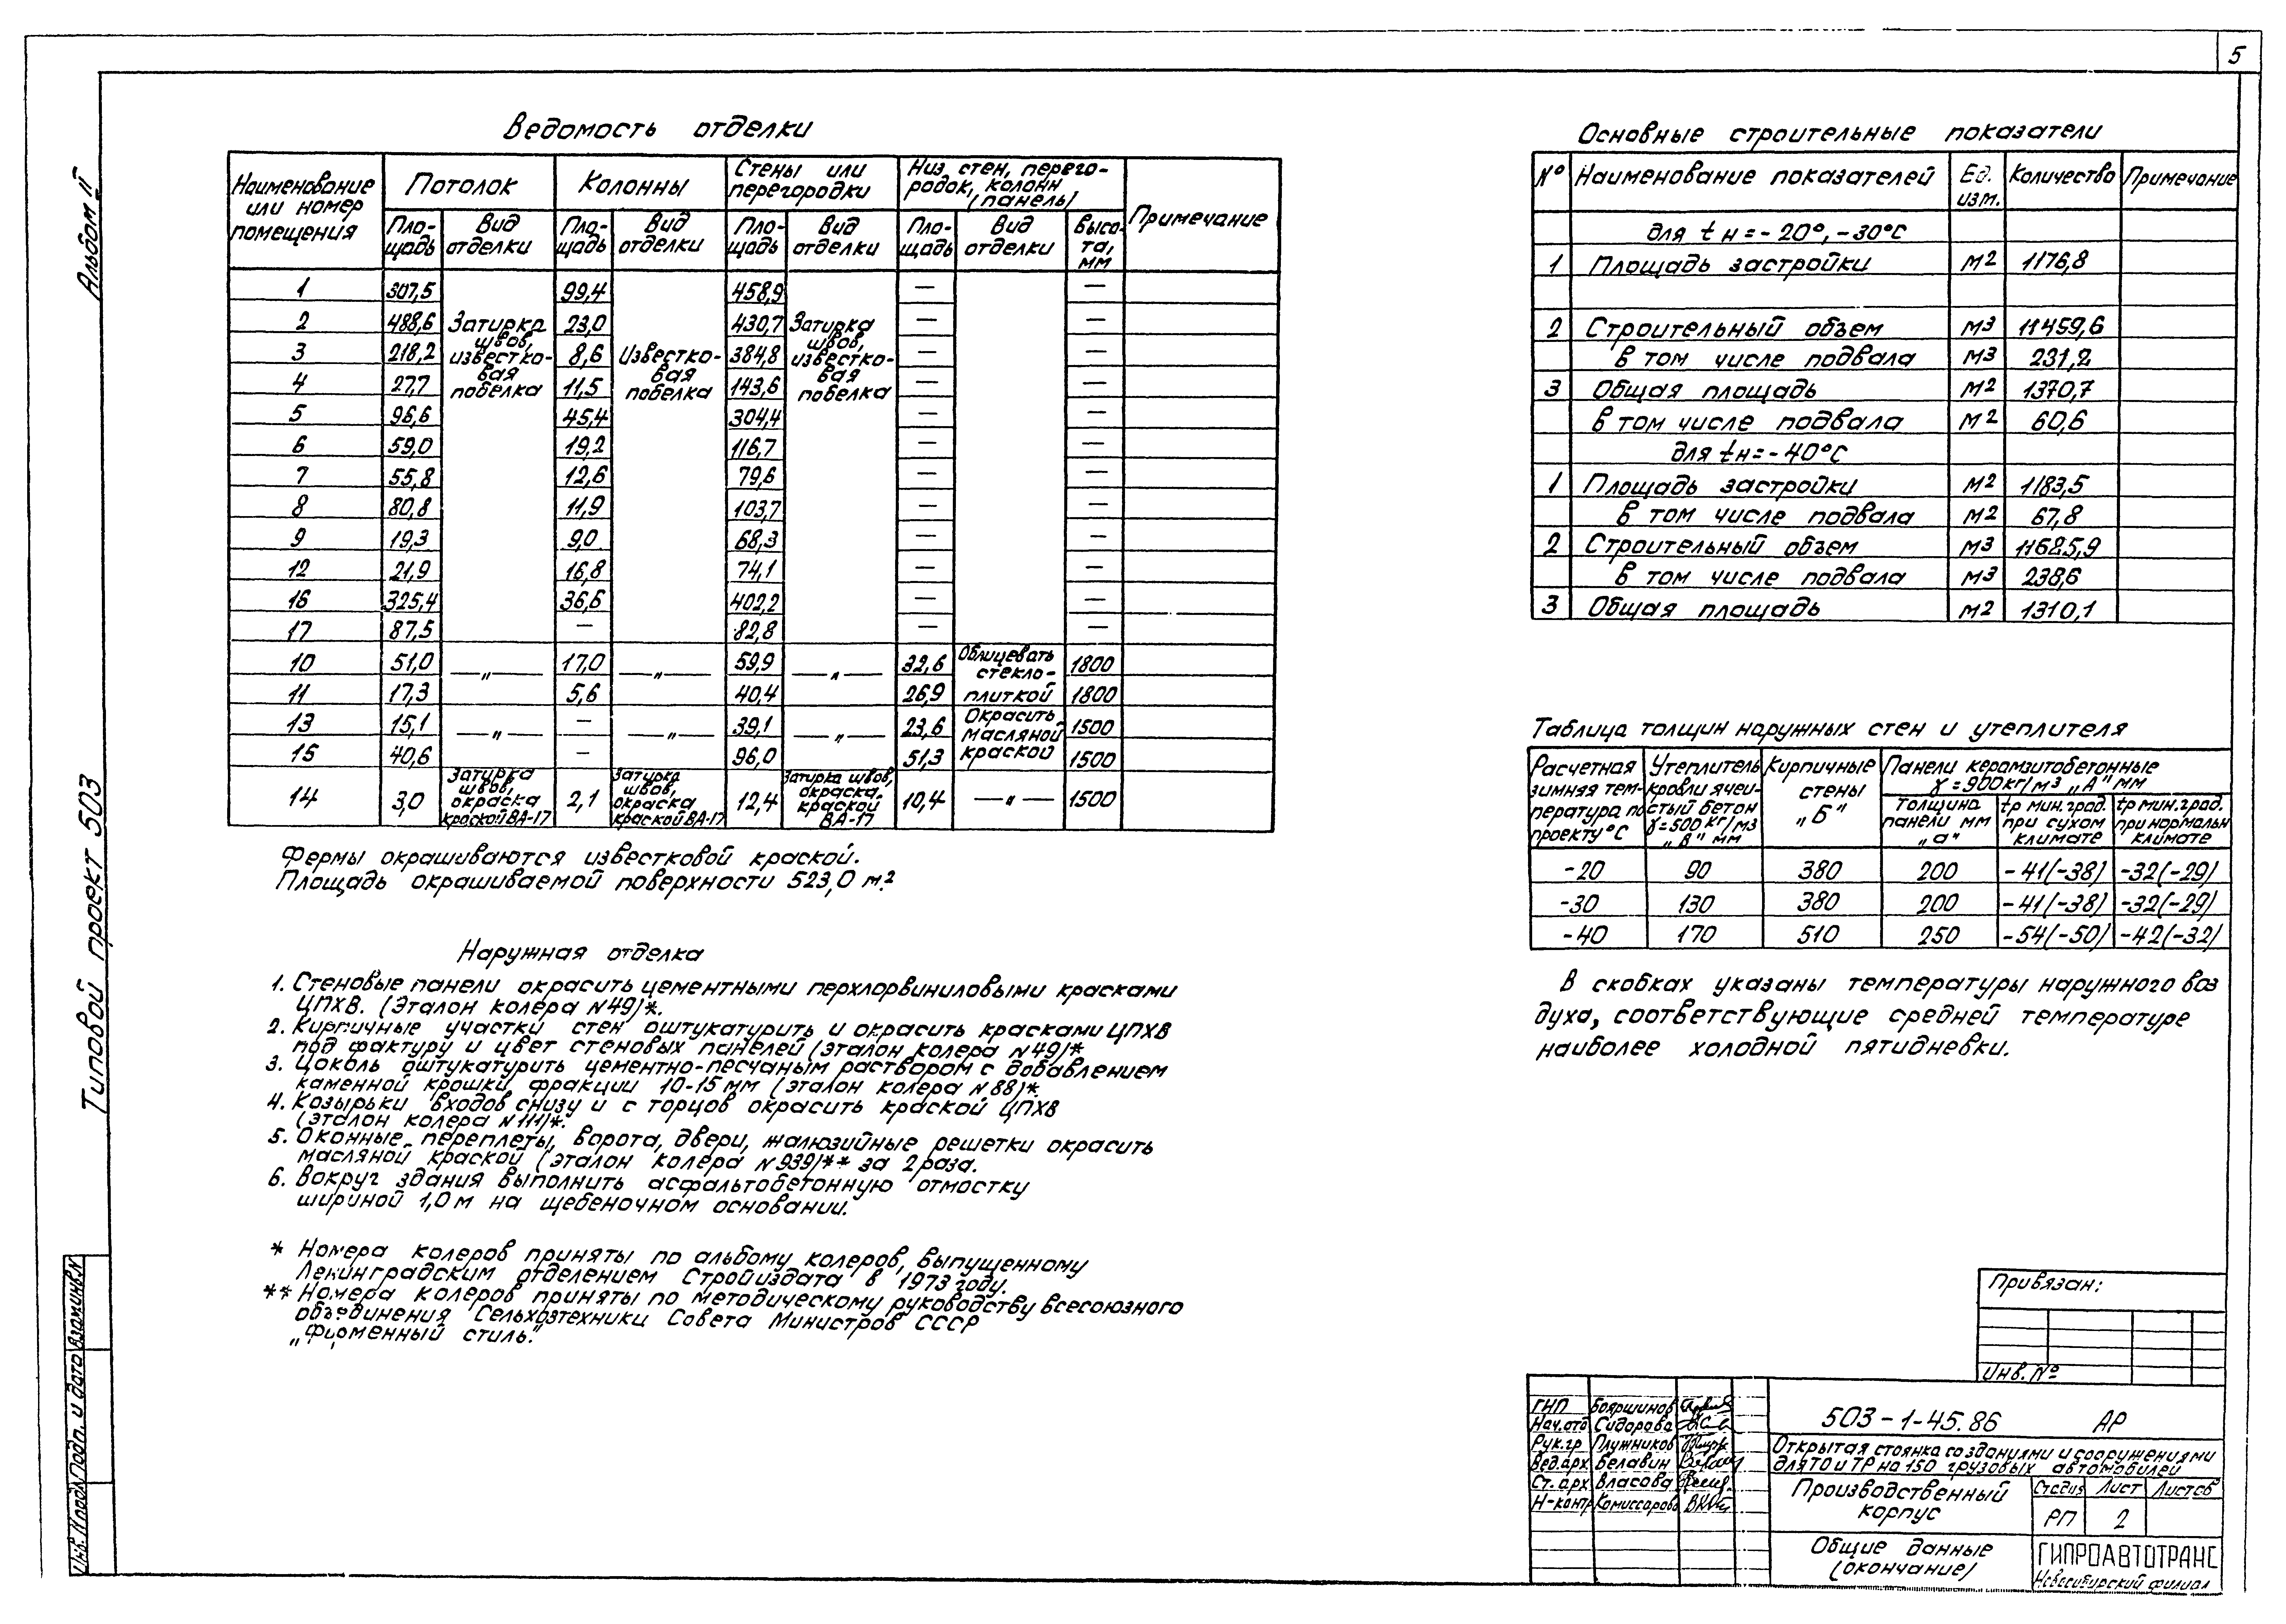 5
Альбом II
Типовой проект 503
Ведомость отделки
Наименование или номер помещения | Потолок | Колонны | Стены или перегородки | Низ стен, перегородок, колонн (панель) | Примечание
Площадь | Вид отделки | Площадь | Вид отделки | Площадь | Вид отделки | Площадь | Вид отделки | Высота, мм
1 | 307,5 | Затирка швов, известковая побелка | 99,4 | Известковая побелка | 458,9 | Затирка швов, известковая побелка | — | —
2 | 488,6 | 23,0 | 430,7 | — | —
3 | 218,2 | 8,6 | 384,8 | — | —
4 | 27,7 | 11,5 | 143,6 | — | —
5 | 96,6 | 45,4 | 304,4 | — | —
6 | 59,0 | 19,2 | 116,7 | — | —
7 | 55,8 | 12,6 | 79,6 | — | —
8 | 80,8 | 11,9 | 103,7 | — | —
9 | 19,3 | 9,0 | 68,3 | — | —
12 | 21,9 | 16,8 | 74,1 | — | —
16 | 325,4 | 36,6 | 402,2 | — | —
17 | 87,5 | — | 82,8 | — | —
10 | 51,0 | —„— | 17,0 | —„— | 59,9 | —„— | 32,6 | Облицевать стекло- | 1800
11 | 17,3 | 5,6 | 40,4 | 26,9 | плиткой | 1800
13 | 15,1 | —„— | — | —„— | 39,1 | —„— | 23,6 | Окрасить масляной | 1500
15 | 40,6 | — | 96,0 | 51,3 | краской | 1500
14 | 3,0 | Затирка швов, окраска краской ВА-17 | 2,1 | Затирка швов, окраска краской ВА-17 | 12,4 | Затирка швов, окраска краской ВА-17 | 10,4 | —„— | 1500
Фермы окрашиваются известковой краской.
Площадь окрашиваемой поверхности 523,0 м.²
Наружная отделка
1. Стеновые панели окрасить цементными перхлорвиниловыми красками
ЦПХВ. (Эталон колера N49)*.
2. Кирпичные участки стен оштукатурить и окрасить красками ЦПХВ
под фактуру и цвет стеновых панелей (эталон колера N49)*
3. Цоколь оштукатурить цементно-песчаным раствором с добавлением
каменной крошки фракции 10-15 мм (эталон колера N88)*.
4. Козырьки входов снизу и с торцов окрасить краской ЦПХВ
(эталон колера N111)*.
5. Оконные переплеты, ворота, двери, жалюзийные решетки окрасить
масляной краской (эталон колера N939)** за 2 раза.
6. Вокруг здания выполнить асфальтобетонную отмостку
шириной 1,0 м на щебеночном основании.
* Номера колеров приняты по альбому колеров, выпущенному
Ленинградским отделением Стройиздата в 1973 году.
** Номера колеров приняты по методическому руководству всесоюзного
объединения Сельхозтехники Совета Министров СССР
„Фирменный стиль."
Основные строительные показатели
N° | Наименование показателей | Ед. изм. | Количество | Примечание
для tн=-20°, -30°С
1 | Площадь застройки | м2 | 1176,8
2 | Строительный объем | м3 | 11459,6
в том числе подвала | м3 | 231,2
3 | Общая площадь | м2 | 1370,7
в том числе подвала | м2 | 60,6
для tн=-40°С
1 | Площадь застройки | м2 | 1183,5
в том числе подвала | м2 | 67,8
2 | Строительный объем | м3 | 11685,9
в том числе подвала | м3 | 238,6
3 | Общая площадь | м2 | 1310,1
Таблица толщин наружных стен и утеплителя
Расчетная зимняя температура по проекту °С | Утеплитель кровли ячеистый бетон γ=500 кг/м3 „В" мм | Кирпичные стены „Б" | Панели керамзитобетонные γ=900кг/м3 „А" мм
Толщина панели мм „а" | tр мин.град. при сухом климате | tр мин.град. при нормальн климате
-20 | 90 | 380 | 200 | -41(-38) | -32(-29)
-30 | 130 | 380 | 200 | -41(-38) | -32(-29)
-40 | 170 | 510 | 250 | -54(-50) | -42(-32)
В скобках указаны температуры наружного воз
духа, соответствующие средней температуре
наиболее холодной пятидневки.
Привязан:
Инв. N°
ГИП Бояршинов
Нач.отд Сидорова
Рук.гр. Плужников
Вед.арх Белавин
Ст.арх Власова
Н-контр Комиссарова
503-1-45.86 АР
Открытая стоянка со зданиями и сооружениями
для ТО и ТР на 150 грузовых автомобилей
Производственный корпус
Стадия | Лист | Листов
РП | 2
Общие данные (окончание)
ГИПРОАВТОТРАНС
Новосибирский филиал
Инв. N подл. Подп. и дата Взам.инв.N